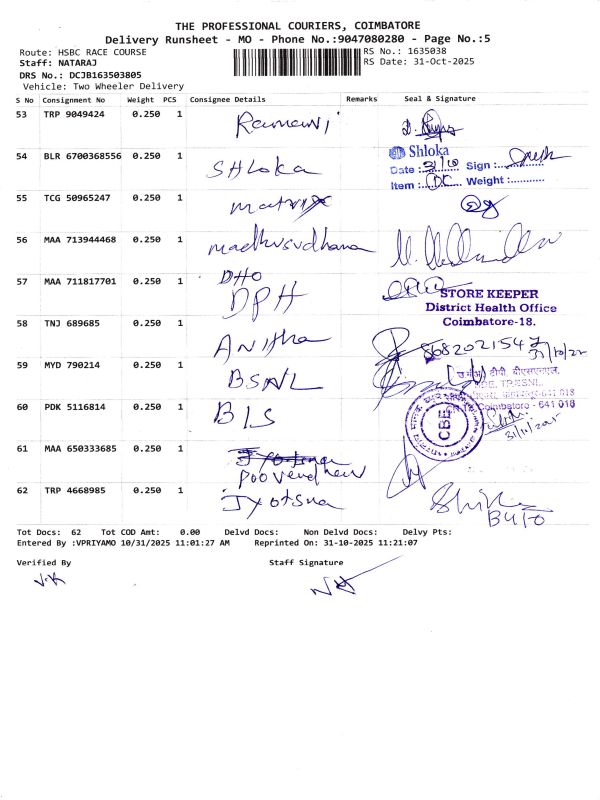 THE PROFESSIONAL COURIERS, COIMBATORE
Delivery Runsheet - MO - Phone No.:9047080280 - Page No.:5
Route: HSBC RACE COURSE
RS No.: 1635038
Staff: NATARAJ
RS Date: 31-Oct-2025
DRS No.: DCJB163503805
Vehicle: Two Wheeler Delivery
S No Consignment No Weight PCS Consignee Details Remarks Seal & Signature
53 TRP 9049424 0.250 1 Ramani
54 BLR 6700368556 0.250 1 SHloka
Shloka
Date : 31/10 Sign :
Item : Weight :
55 TCG 50965247 0.250 1 matrix
56 MAA 713944468 0.250 1 madhusudhana
57 MAA 711817701 0.250 1 DHO
DPH
STORE KEEPER
District Health Office
Coimbatore-18.
58 TNJ 689685 0.250 1 Anitha
31/10/25
59 MYD 790214 0.250 1 BSNL
60 PDK 5116814 0.250 1 BIS
Coimbatore - 641 018
CBE
31/10/2025
61 MAA 650333685 0.250 1
62 TRP 4668985 0.250 1 Jyotsna
Tot Docs: 62 Tot COD Amt: 0.00 Delvd Docs: Non Delvd Docs: Delvy Pts:
Entered By :VPRIYAMO 10/31/2025 11:01:27 AM Reprinted On: 31-10-2025 11:21:07
Verified By Staff Signature